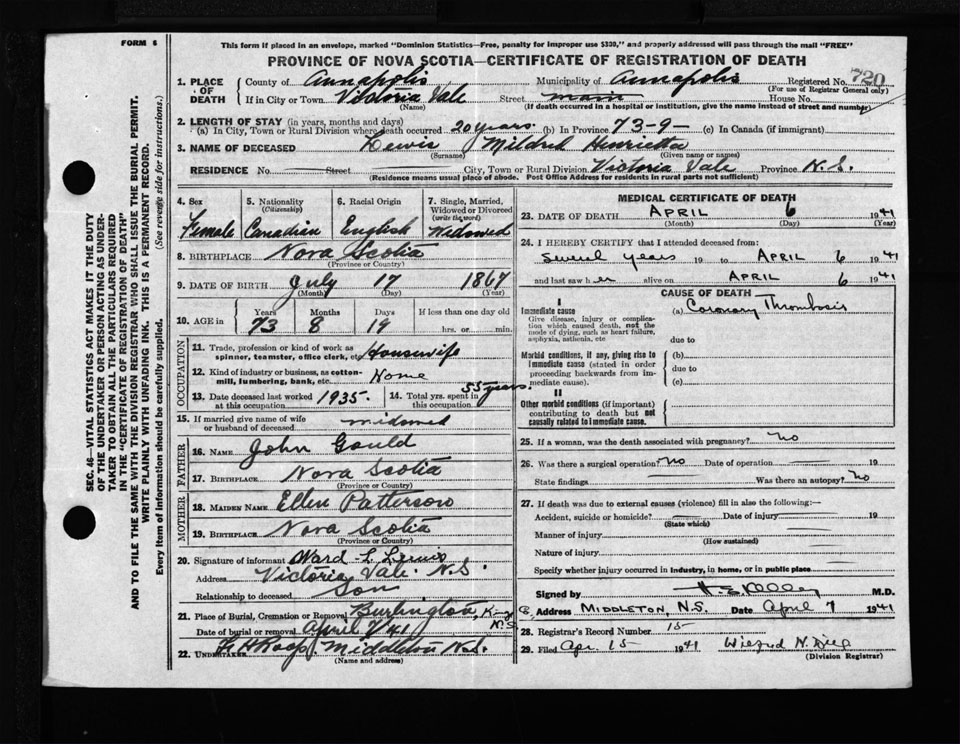 FORM 6
This form if placed in an envelope, marked "Dominion Statistics—Free, penalty for improper use $300," and properly addressed will pass through the mail "FREE"
PROVINCE OF NOVA SCOTIA—CERTIFICATE OF REGISTRATION OF DEATH
1. PLACE OF DEATH County of Annapolis Municipality of Annapolis Registered No. 720
(For use of Registrar General only)
If in City or Town Victoria Vale Street main House No.
(Name) (If death occurred in a hospital or institution, give the name instead of street and number)
2. LENGTH OF STAY (in years, months and days)
(a) In City, Town or Rural Division where death occurred 20 years (b) In Province 73-9- (c) In Canada (if immigrant)
3. NAME OF DECEASED Lewis Mildred Henrietta
(Surname) (Given name or names)
RESIDENCE No. Street City, Town or Rural Division Victoria Vale Province N.S.
(Residence means usual place of abode. Post Office Address for residents in rural parts not sufficient)
4. Sex Female
5. Nationality (Citizenship) Canadian
6. Racial Origin English
7. Single, Married, Widowed or Divorced (write the word) Widowed
8. BIRTHPLACE Nova Scotia
(Province or Country)
9. DATE OF BIRTH July 17 1867
(Month) (Day) (Year)
10. AGE in Years 73 Months 8 Days 19 If less than one day old
hrs. or min.
OCCUPATION
11. Trade, profession or kind of work as spinner, teamster, office clerk, etc. Housewife
12. Kind of industry or business, as cotton-mill, lumbering, bank, etc. Home
13. Date deceased last worked at this occupation 1935 14. Total yrs. spent in this occupation 55 years
15. If married give name of wife or husband of deceased widowed
FATHER
16. NAME John Gould
17. BIRTHPLACE Nova Scotia
(Province or Country)
MOTHER
18. MAIDEN NAME Ellen Patterson
19. BIRTHPLACE Nova Scotia
(Province or Country)
20. Signature of informant Ward L. Lewis
Address Victoria Vale N.S.
Relationship to deceased Son
21. Place of Burial, Cremation or Removal Burlington, Kings N.S.
Date of burial or removal April 9/41
22. UNDERTAKER Middleton N.S.
(Name and address)
MEDICAL CERTIFICATE OF DEATH
23. DATE OF DEATH APRIL 6 1941
(Month) (Day) (Year)
24. I HEREBY CERTIFY that I attended deceased from:
several years 19 to APRIL 6 1941
and last saw her alive on APRIL 6 1941
CAUSE OF DEATH
I
Immediate cause
Give disease, injury or complication which caused death, not the mode of dying, such as heart failure, asphyxia, asthenia, etc
(a) Coronary Thrombosis
due to
Morbid conditions, if any, giving rise to immediate cause (stated in order proceeding backwards from immediate cause).
(b)
due to
(c)
II
Other morbid conditions (if important) contributing to death but not causally related to immediate cause.
25. If a woman, was the death associated with pregnancy? no
26. Was there a surgical operation? no Date of operation 19
State findings Was there an autopsy? no
27. If death was due to external causes (violence) fill in also the following:—
Accident, suicide or homicide? Date of injury 19
(State which)
Manner of injury
(How sustained)
Nature of injury
Specify whether injury occurred in industry, in home, or in public place
Signed by M.D.
Address MIDDLETON, N.S. Date April 7 1941
28. Registrar's Record Number 15
29. Filed Apr. 15 1941 Wilfred H.
(Division Registrar)
SEC. 46—VITAL STATISTICS ACT MAKES IT THE DUTY
OF THE UNDERTAKER OR PERSON ACTING AS UNDER-
TAKER TO OBTAIN ALL THE PARTICULARS REQUIRED
IN THE "CERTIFICATE OF REGISTRATION OF DEATH"
AND TO FILE THE SAME WITH THE DIVISION REGISTRAR WHO SHALL ISSUE THE BURIAL PERMIT.
WRITE PLAINLY WITH UNFADING INK. THIS IS A PERMANENT RECORD.
Every item of information should be carefully supplied. (See reverse side for instructions.)